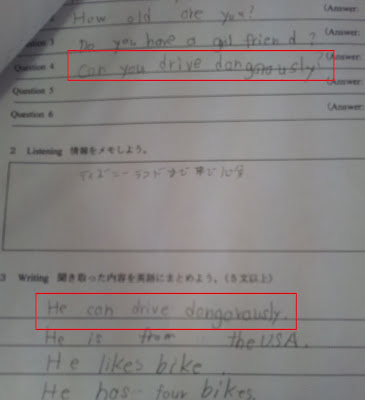 2 How old are you? (Answer:
Question 3 Do you have a girl friend? (Answer:
Question 4 Can you drive dangorously? (Answer:
Question 5
Question 6 (Answer:
2 Listening 情報をメモしよう。
ディズニーランドまで車で10分
3 Writing 聞き取った内容を英語にまとめよう。(5文以上)
He can drive dangorously.
He is from the USA.
He likes bike.
He has four bikes.